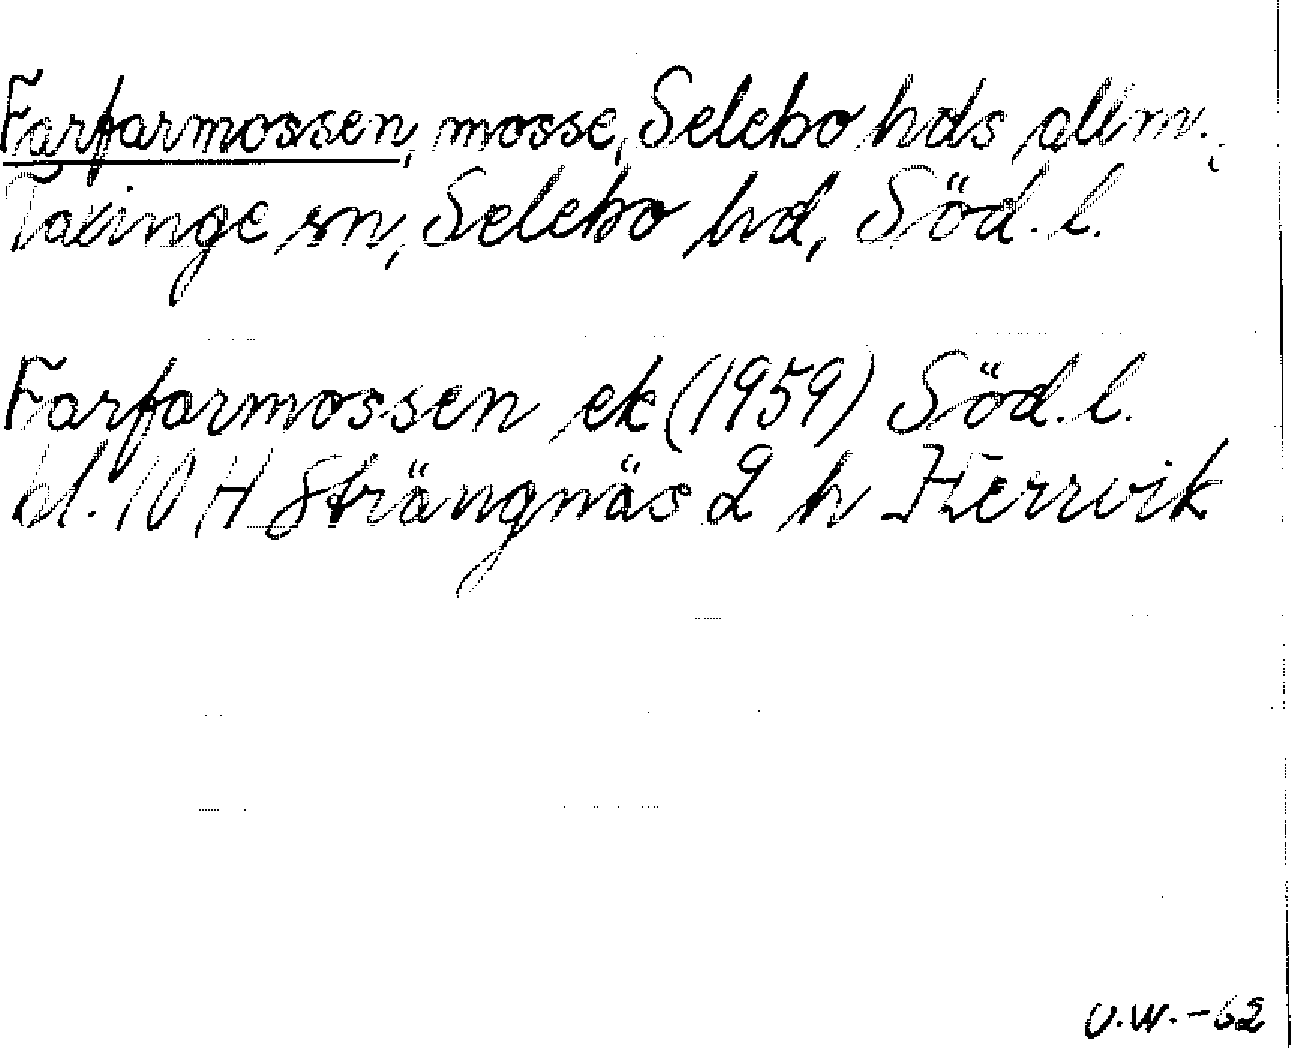 Farfarmossen, mosse, Selebo hds allm.,
Taxinge sn, Selebo hd, Söd. l.
Farfarmossen ek (1959) Söd. l.
bl. 10 H Strängnäs 2 h Herrvik
U.W. -62